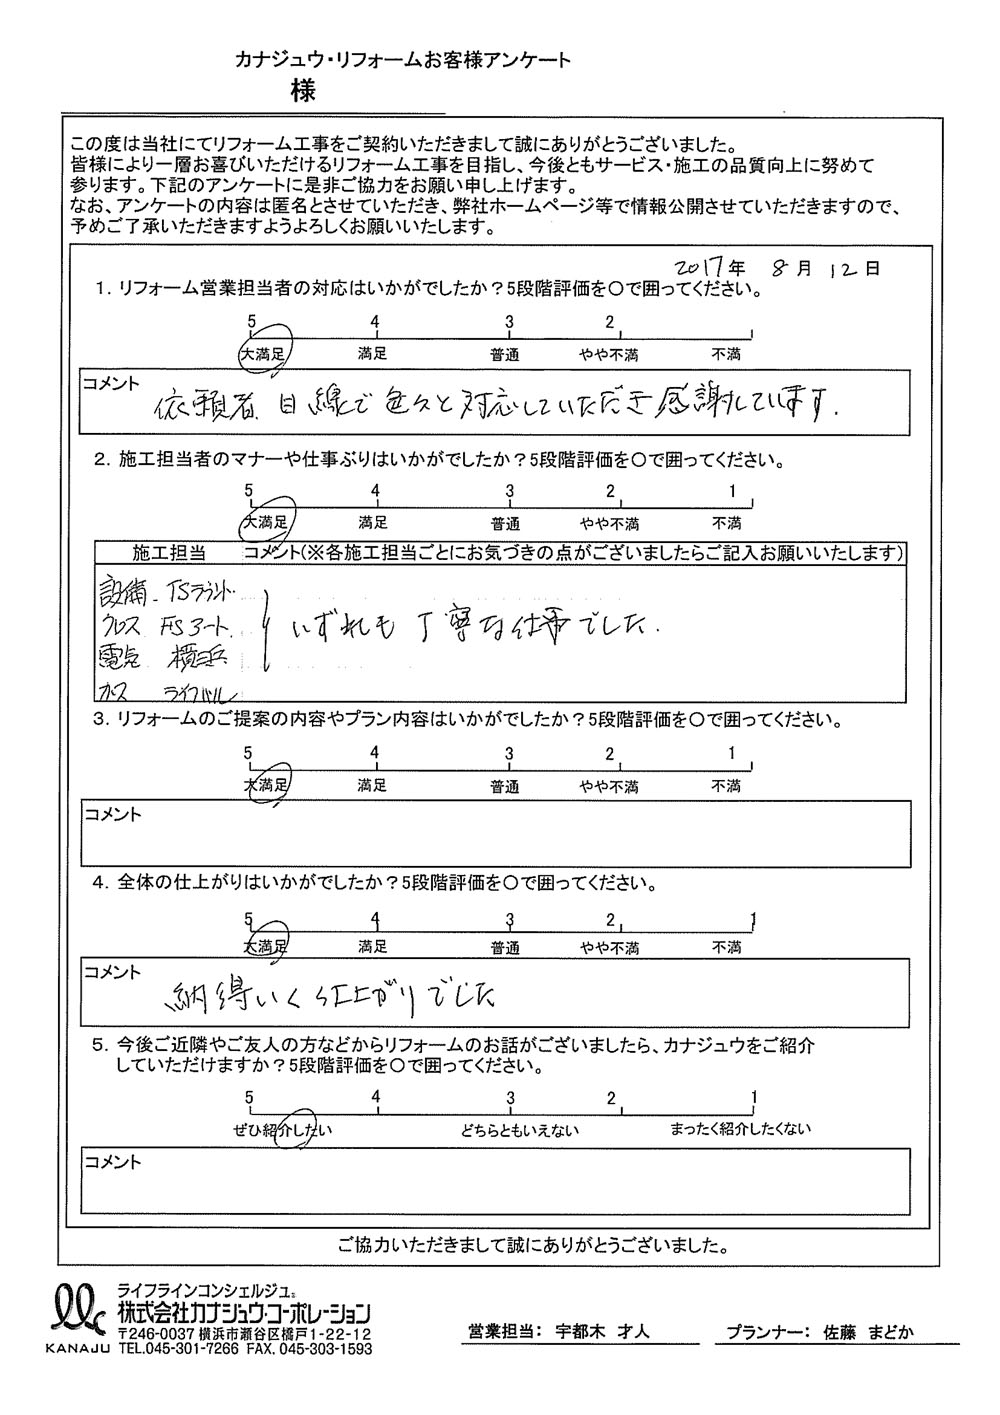 カナジュウ・リフォームお客様アンケート
様
この度は当社にてリフォーム工事をご契約いただきまして誠にありがとうございました。
皆様により一層お喜びいただけるリフォーム工事を目指し、今後ともサービス・施工の品質向上に努めて
参ります。下記のアンケートに是非ご協力をお願い申し上げます。
なお、アンケートの内容は匿名とさせていただき、弊社ホームページ等で情報公開させていただきますので、
予めご了承いただきますようよろしくお願いいたします。
2017年 8月 12日
1. リフォーム営業担当者の対応はいかがでしたか？5段階評価を〇で囲ってください。
5 4 3 2
大満足 満足 普通 やや不満 不満
コメント
依頼者、目線で色々と対応していただき感謝しています.
2. 施工担当者のマナーや仕事ぶりはいかがでしたか？5段階評価を〇で囲ってください。
5 4 3 2 1
大満足 満足 普通 やや不満 不満
施工担当 コメント(※各施工担当ごとにお気づきの点がございましたらご記入お願いいたします)
設備 TSラウンド
クロス FSコート
いずれも丁寧な仕事でした.
電気 横浜
ガス ライフバル
3. リフォームのご提案の内容やプラン内容はいかがでしたか？5段階評価を〇で囲ってください。
5 4 3 2 1
大満足 満足 普通 やや不満 不満
コメント
4. 全体の仕上がりはいかがでしたか？5段階評価を〇で囲ってください。
5 4 3 2 1
大満足 満足 普通 やや不満 不満
コメント
納得いく仕上がりでした
5. 今後ご近隣やご友人の方などからリフォームのお話がございましたら、カナジュウをご紹介
していただけますか？5段階評価を〇で囲ってください。
5 4 3 2 1
ぜひ紹介したい どちらともいえない まったく紹介したくない
コメント
ご協力いただきまして誠にありがとうございました。
ライフラインコンシェルジュ®
株式会社カナジュウ・コーポレーション
〒246-0037 横浜市瀬谷区橋戸1-22-12
KANAJU TEL.045-301-7266 FAX.045-303-1593
営業担当: 宇都木 才人
プランナー: 佐藤 まどか